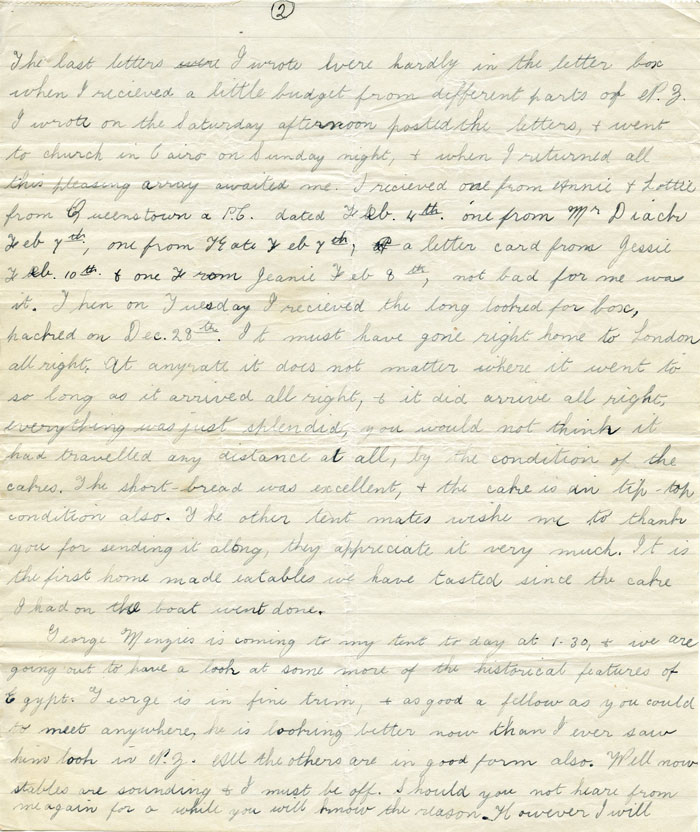 2
The last letters were I wrote were hardly in the letter box
when I recieved a little budget from different parts of N.Z.
I wrote on the Saturday afternoon posted the letters, & went
to church in Cairo on Sunday night, & when I returned all
this pleasing array awaited me. I recieved one from Annie & Lottie
from Queenstown a P.C. dated Feb. 4th. one from Mr Diack
Feb 7th, one from Kate Feb 7th, a letter card from Jessie
Feb. 10th. & one From Jeanie Feb 8th, not bad for me was
it. Then on Tuesday I recieved the long looked for box,
packed on Dec. 28th. It must have gone right home to London
all right. At anyrate it does not matter where it went to
so long as it arrived all right, & it did arrive all right,
everything was just splendid, you would not think it
had travelled any distance at all, by the condition of the
cakes. The short-bread was excellent, & the cake is in tip-top
condition also. The other tent mates wishe me to thank
you for sending it along, they appreciate it very much. It is
the first home made eatables we have tasted since the cake
I had on the boat went done.
George Menzies is coming to my tent to day at 1.30, & we are
going out to have a look at some more of the historical features of
Egypt. George is in fine trim, & as good a fellow as you could
to meet anywhere, he is looking better now than I ever saw
him look in N.Z. All the others are in good form also. Well now
stables are sounding & I must be off. Should you not heare from
me again for a while you will know the reason. However I will